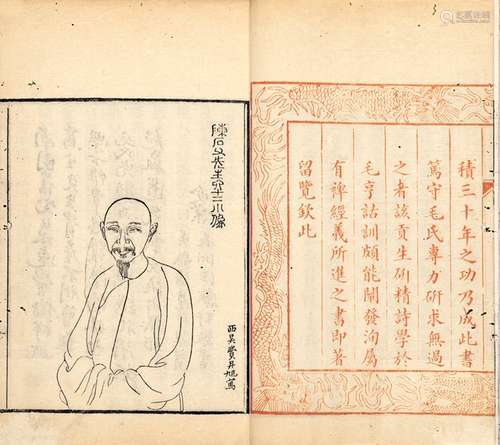 積三十年之功乃成此書
篤守毛氏專力研求無過
之者該貢生研精詩學於
毛亨詁訓頗能闡發洵屬
有裨經義所進之書即著
留覽欽此
陳石父先生三小像
西吳費丹旭寫